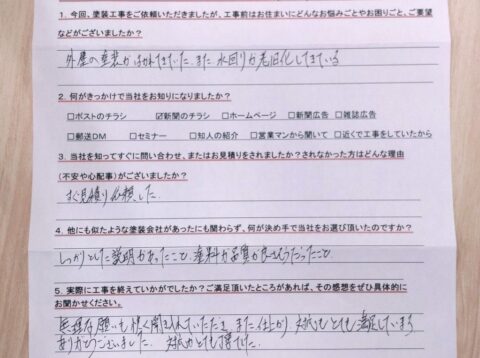 1. 今回、塗装工事をご依頼いただきましたが、工事前はお住まいにどんなお悩みごとやお困りごと、ご要望
などがございましたか？
外壁の塗装がはがれてきていた、また水回りが老旧化してきている
2. 何がきっかけで当社をお知りになりましたか？
□ポストのチラシ ☑新聞のチラシ □ホームページ □新聞広告 □雑誌広告
□郵送DM □セミナー □知人の紹介 □営業マンから聞いて □近くで工事をしていたから
3. 当社を知ってすぐに問い合わせ、またはお見積りをされましたか？されなかった方はどんな理由
（不安や心配事）がございましたか？
すぐ見積り依頼した。
4. 他にも似たような塗装会社があったにも関わらず、何が決め手で当社をお選び頂いたのですか？
しっかりとした説明があったこと、塗料が品質が良さそうだったこと
5. 実際に工事を終えていかがでしたか？ご満足頂いたところがあれば、その感想をぜひ具体的に
お聞かせください。
無理なお願いも快く聞き入れていただき、また仕上がり、対応もとても満足しています
ありがとうございました。対応がとても